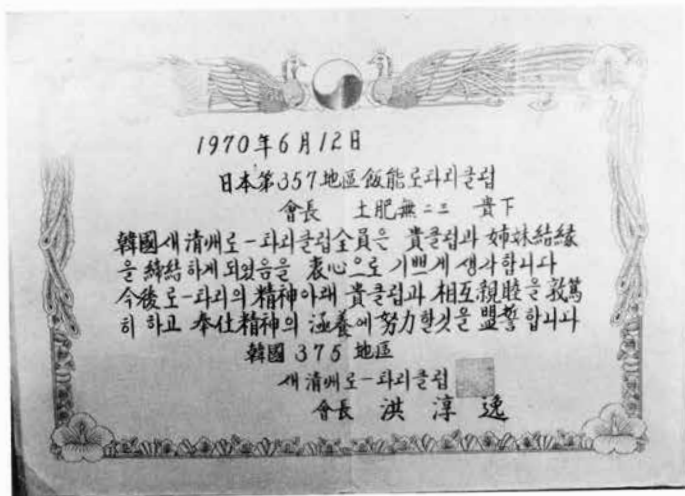 1970年6月12日
日本第357地區飯能로타리클럽
會長 土肥無二三 貴下
韓國새淸州로-타리클럽全員은 貴클럽과 姉妹結緣
을 締結하게 되었음을 衷心으로 기쁘게 생각합니다
今後로-타리의 精神아래 貴클럽과 相互親睦을 敦篤
히 하고 奉仕精神의 涵養에 努力할것을 盟誓합니다
韓國 375 地區
새淸州로-타리클럽
會長 洪淳逸